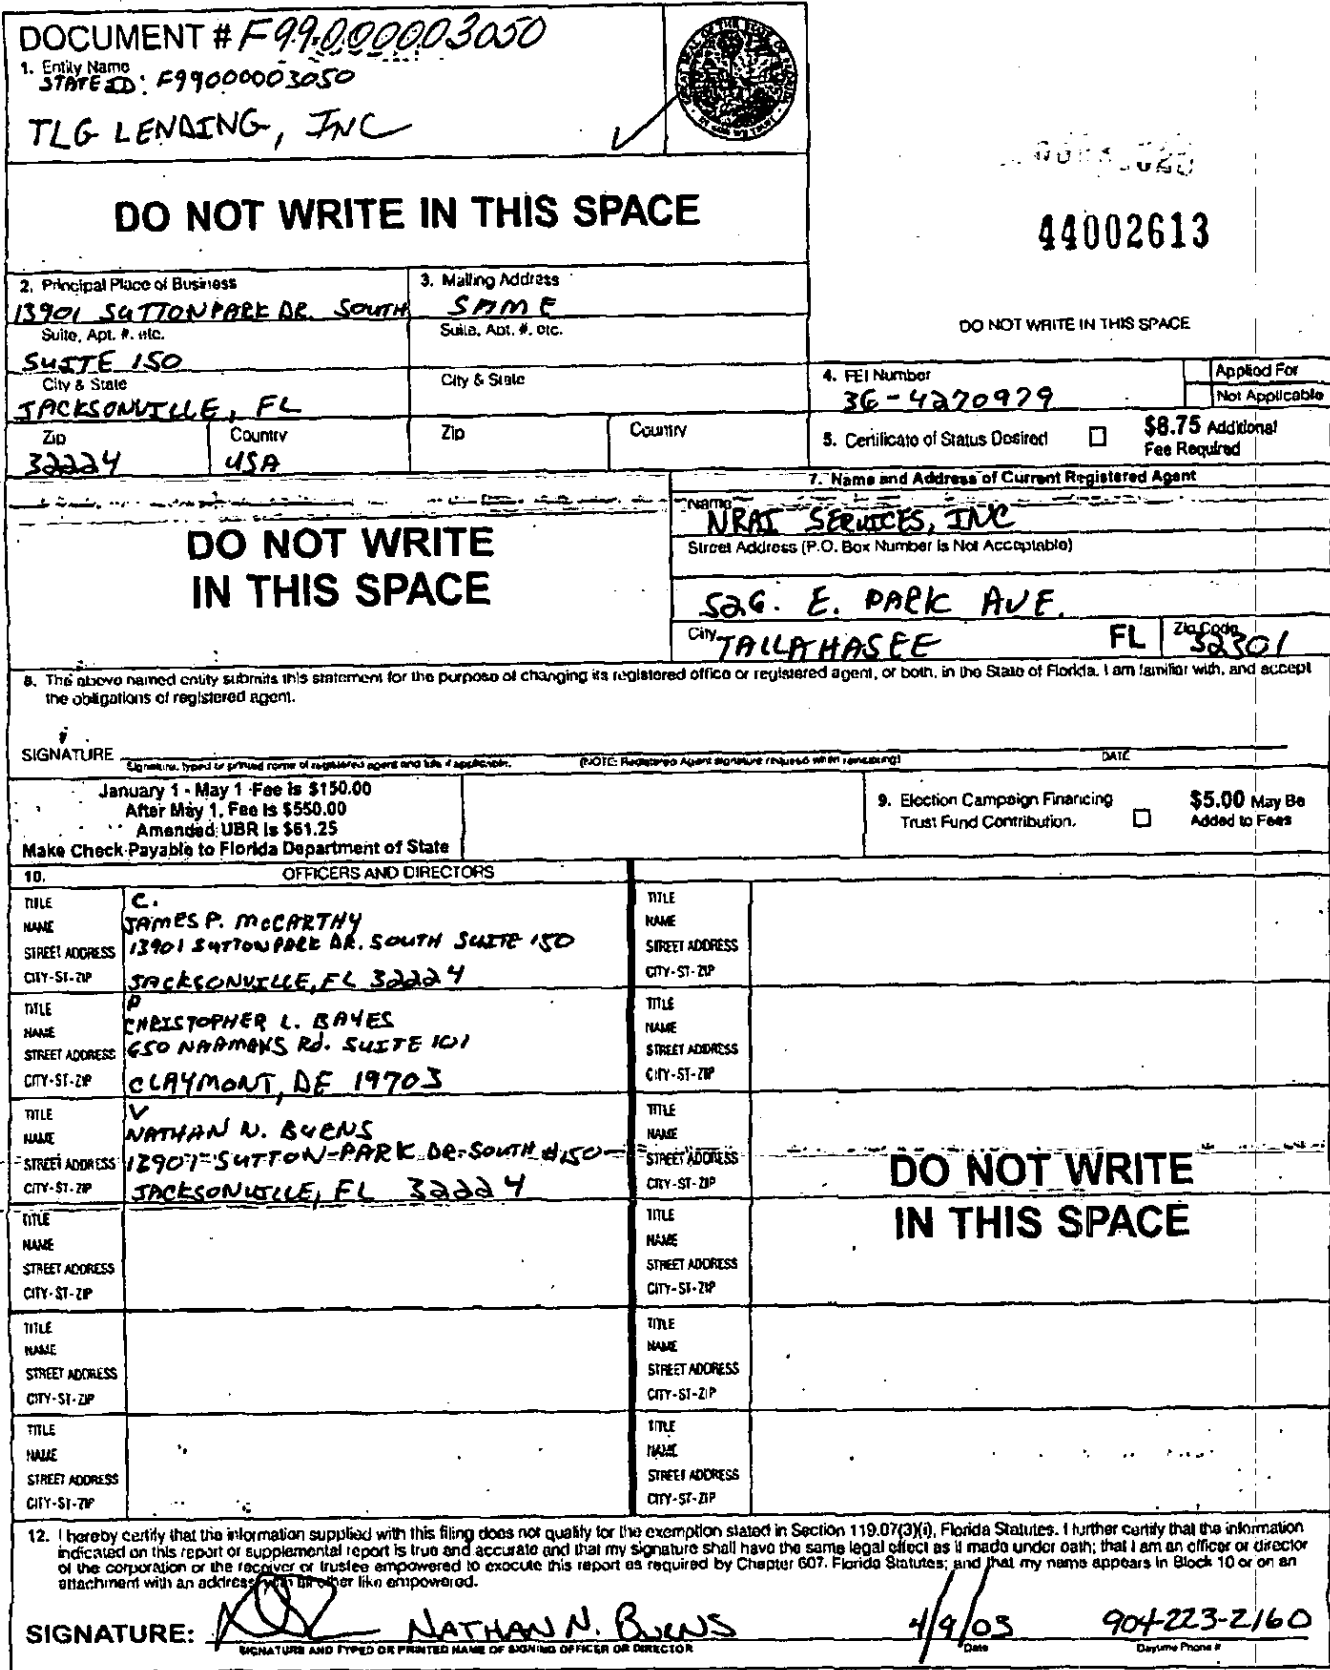 DOCUMENT # F99000003050
1. Entity Name
STATE ID: F99000003050
TLG LENDING, INC
DO NOT WRITE IN THIS SPACE
44002613
DO NOT WRITE IN THIS SPACE
2. Principal Place of Business
13901 SUTTON PARK DR. SOUTH
Suite, Apt. #, etc.
SUITE 150
City & State
JACKSONVILLE, FL
Zip Country
32224 USA
3. Mailing Address
SAME
Suite, Apt. #, etc.
City & State
Zip Country
4. FEI Number
36-4270979
Applied For
Not Applicable
5. Certificate of Status Desired
$8.75 Additional
Fee Required
DO NOT WRITE
IN THIS SPACE
7. Name and Address of Current Registered Agent
Name
NRAI SERVICES, INC
Street Address (P.O. Box Number is Not Acceptable)
526. E. PARK AVE.
City TALLAHASEE FL Zip Code 32301
8. The above named entity submits this statement for the purpose of changing its registered office or registered agent, or both, in the State of Florida. I am familiar with, and accept
the obligations of registered agent.
SIGNATURE
Signature, typed or printed name of registered agent and title if applicable. (NOTE: Registered Agent signature required when reinstating) DATE
January 1 - May 1 Fee is $150.00
After May 1, Fee is $550.00
Amended UBR is $61.25
Make Check Payable to Florida Department of State
9. Election Campaign Financing
Trust Fund Contribution.
$5.00 May Be
Added to Fees
10. OFFICERS AND DIRECTORS
TITLE C.
NAME JAMES P. McCARTHY
STREET ADDRESS 13901 SUTTON PARK DR. SOUTH SUITE 150
CITY-ST-ZIP JACKSONVILLE, FL 32224
TITLE P
NAME CHRISTOPHER L. BAYES
STREET ADDRESS 650 NAAMANS Rd. SUITE 101
CITY-ST-ZIP CLAYMONT, DE 19703
TITLE V
NAME NATHAN N. BURNS
STREET ADDRESS 13901 SUTTON PARK DR SOUTH #150
CITY-ST-ZIP JACKSONVILLE, FL 32224
TITLE
NAME
STREET ADDRESS
CITY-ST-ZIP
TITLE
NAME
STREET ADDRESS
CITY-ST-ZIP
TITLE
NAME
STREET ADDRESS
CITY-ST-ZIP
TITLE
NAME
STREET ADDRESS
CITY-ST-ZIP
TITLE
NAME
STREET ADDRESS
CITY-ST-ZIP
TITLE
NAME
STREET ADDRESS
CITY-ST-ZIP
TITLE
NAME
STREET ADDRESS
CITY-ST-ZIP
TITLE
NAME
STREET ADDRESS
CITY-ST-ZIP
TITLE
NAME
STREET ADDRESS
CITY-ST-ZIP
DO NOT WRITE
IN THIS SPACE
12. I hereby certify that the information supplied with this filing does not qualify for the exemption stated in Section 119.07(3)(i), Florida Statutes. I further certify that the information
indicated on this report or supplemental report is true and accurate and that my signature shall have the same legal effect as if made under oath; that I am an officer or director
of the corporation or the receiver or trustee empowered to execute this report as required by Chapter 607, Florida Statutes; and that my name appears in Block 10 or on an
attachment with an address, with all other like empowered.
SIGNATURE: NATHAN N. BURNS 4/9/03 904-223-2160
SIGNATURE AND TYPED OR PRINTED NAME OF SIGNING OFFICER OR DIRECTOR Date Daytime Phone #